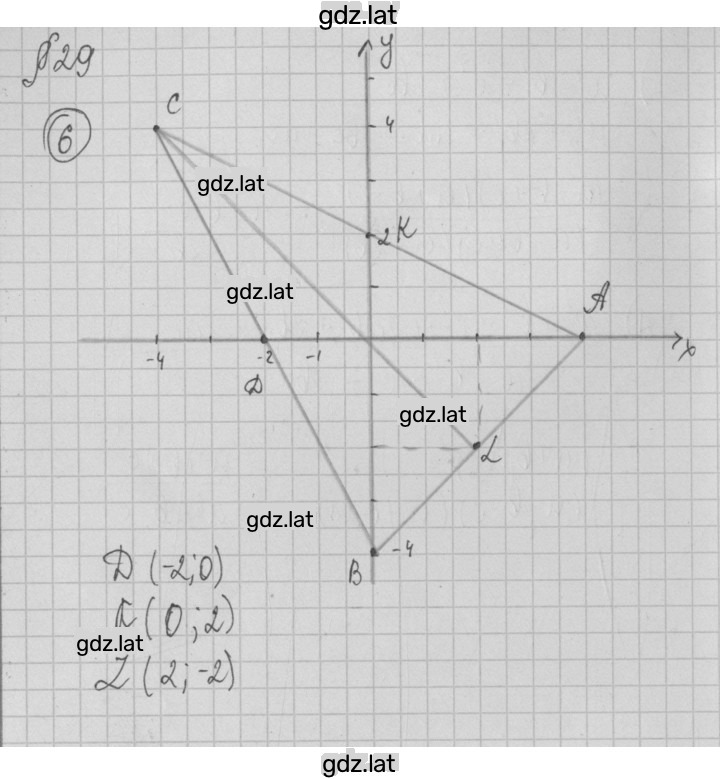 gdz.lat
§ 29
y
C
6
4
gdz.lat
2 K
gdz.lat
A
-4
-2
-1
x
D
gdz.lat
L
gdz.lat
B
-4
D (-2; 0)
K (0; 2)
gdz.lat
L (2; -2)
gdz.lat